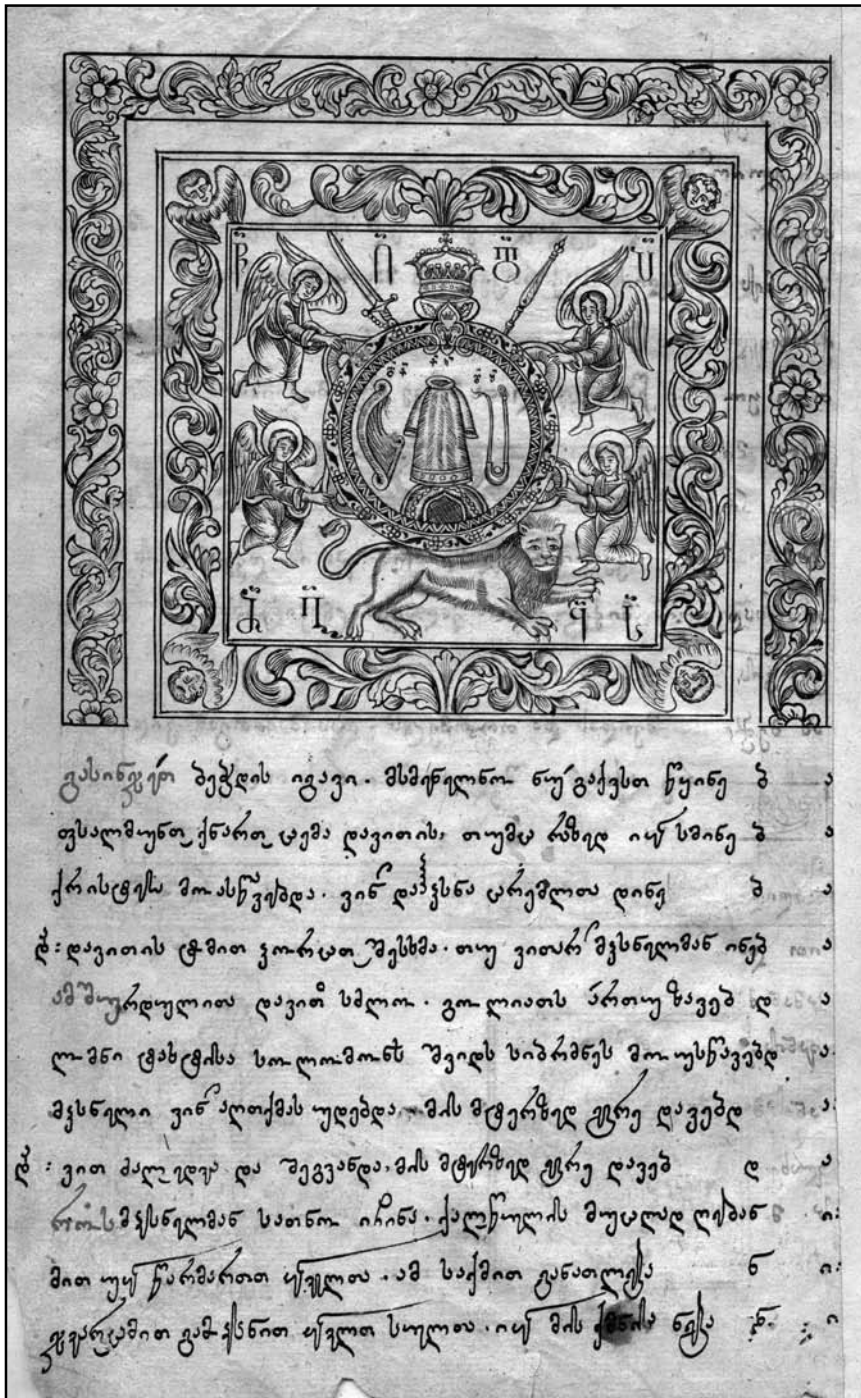 გასინჯეთ ბეჭდის იგავი. მსმენელნო ნუ გაქვსთ წყინე ბ ა
ფსალმუნთ ქნართ ცემა დავითის, თუმც რაზედ იყო სმინე ბ ა
ქრისტესა მოასწავებდა. ვინ დაჰჴსნა ცრემლთა დინე ბ ა
დავითის ტომით ჴორცთ შესხმა. თუ ვითარ მჴსნელმან ინებ ა
ამ შურდულითა დავით სძლო. გოლიათს ართუ ზავებ დ ა
ლომნი ტახტისა სოლომონს შვიდს სიბრძნეს მოუსწავებდ ა
მჴსნელი ვინ აღთქმას უდებდა, მის მტერზედ ეგრე დავებდ ა
ვით ძალ ედვა და შეგვანდა, მის მტერზედ ეგრე დავებ დ ა
მჴსნელმან სათნო იჩინა. ქალწულის მუცლად ღებან ი
მით წარმართთ ყოველთა. ამ საქმით განათლება ნ ი
ჯვარცმით გამოჴსნით ყოველთ სულთა. იყო მის ქმნისა ნება ნ ი